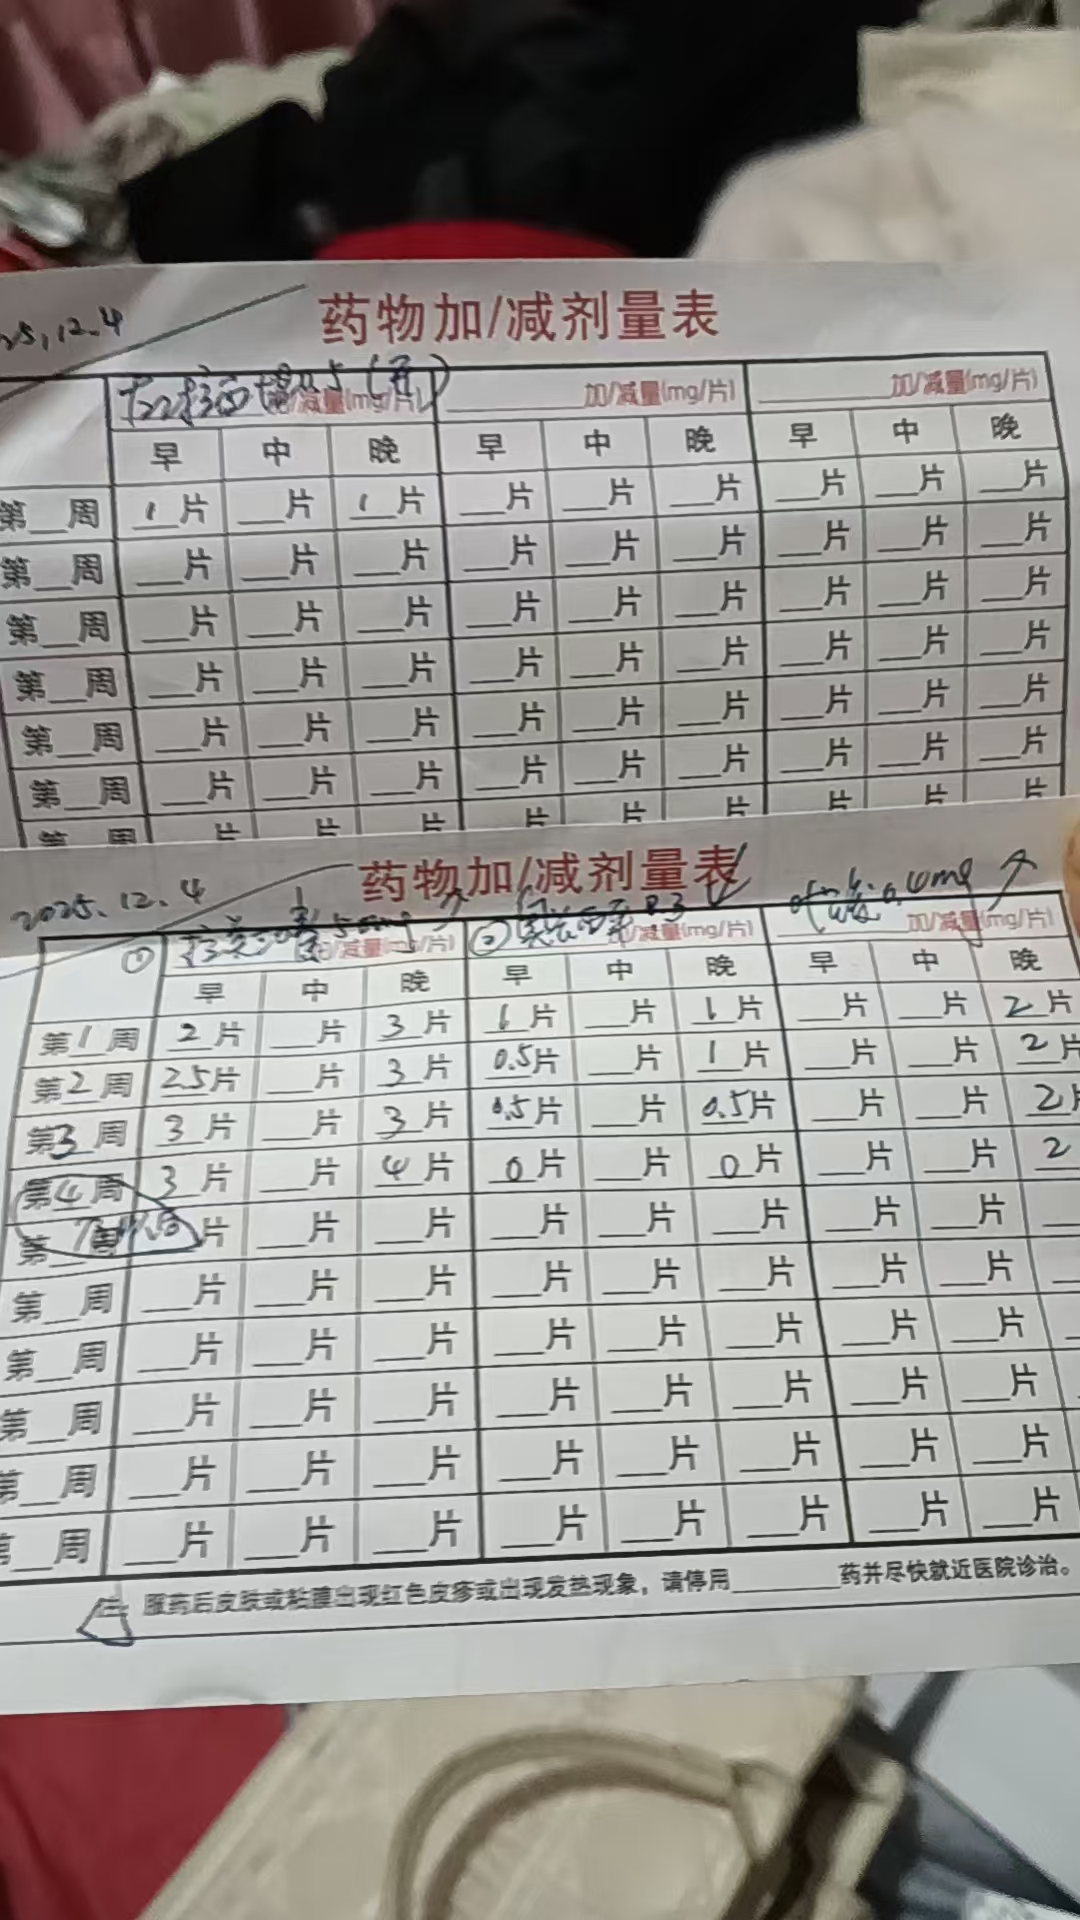 12.4
药物加/减剂量表
左拉西坦0.5 加/减量(mg/片) 加/减量(mg/片) 加/减量(mg/片)
早 中 晚 早 中 晚 早 中 晚
第__周 1片 __片 1片 __片 __片 __片 __片 __片 __片
第__周 __片 __片 __片 __片 __片 __片 __片 __片 __片
第__周 __片 __片 __片 __片 __片 __片 __片 __片 __片
第__周 __片 __片 __片 __片 __片 __片 __片 __片 __片
第__周 __片 __片 __片 __片 __片 __片 __片 __片 __片
第__周 __片 __片 __片 __片 __片 __片 __片 __片 __片
第 周 片 片 片 片 片 片 片 片 片
2025.12.4
药物加/减剂量表
① 拉莫三嗪50mg 加/减量(mg/片) ② 奥卡西平0.3 加/减量(mg/片) 叶酸0.4mg 加/减量(mg/片)
早 中 晚 早 中 晚 早 中 晚
第1周 2片 __片 3片 1片 __片 1片 __片 __片 2片
第2周 2.5片 __片 3片 0.5片 __片 1片 __片 __片 2片
第3周 3片 __片 3片 0.5片 __片 0.5片 __片 __片 2片
第4周 3片 __片 4片 0片 __片 0片 __片 __片 2
第 片 __片 __片 __片 __片 __片 __片 __片
第__周 __片 __片 __片 __片 __片 __片 __片 __片
第__周 __片 __片 __片 __片 __片 __片 __片 __片
第__周 __片 __片 __片 __片 __片 __片 __片 __片
第__周 __片 __片 __片 __片 __片 __片 __片 __片
__周 __片 __片 __片 __片 __片 __片 __片 __片
注: 服药后皮肤或粘膜出现红色皮疹或出现发热现象，请停用________药并尽快就近医院诊治。